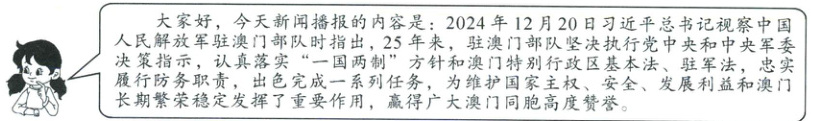 大家好，今天新闻播报的内容是：2024年12月20日习近平总书记视察中国
人民解放军驻澳门部队时指出，25年来，驻澳门部队坚决执行党中央和中央军委
决策指示，认真落实“一国两制”方针和澳门特别行政区基本法、驻军法，忠实
履行防务职责，出色完成一系列任务，为维护国家主权、安全、发展利益和澳门
长期繁荣稳定发挥了重要作用，赢得广大澳门同胞高度赞誉。